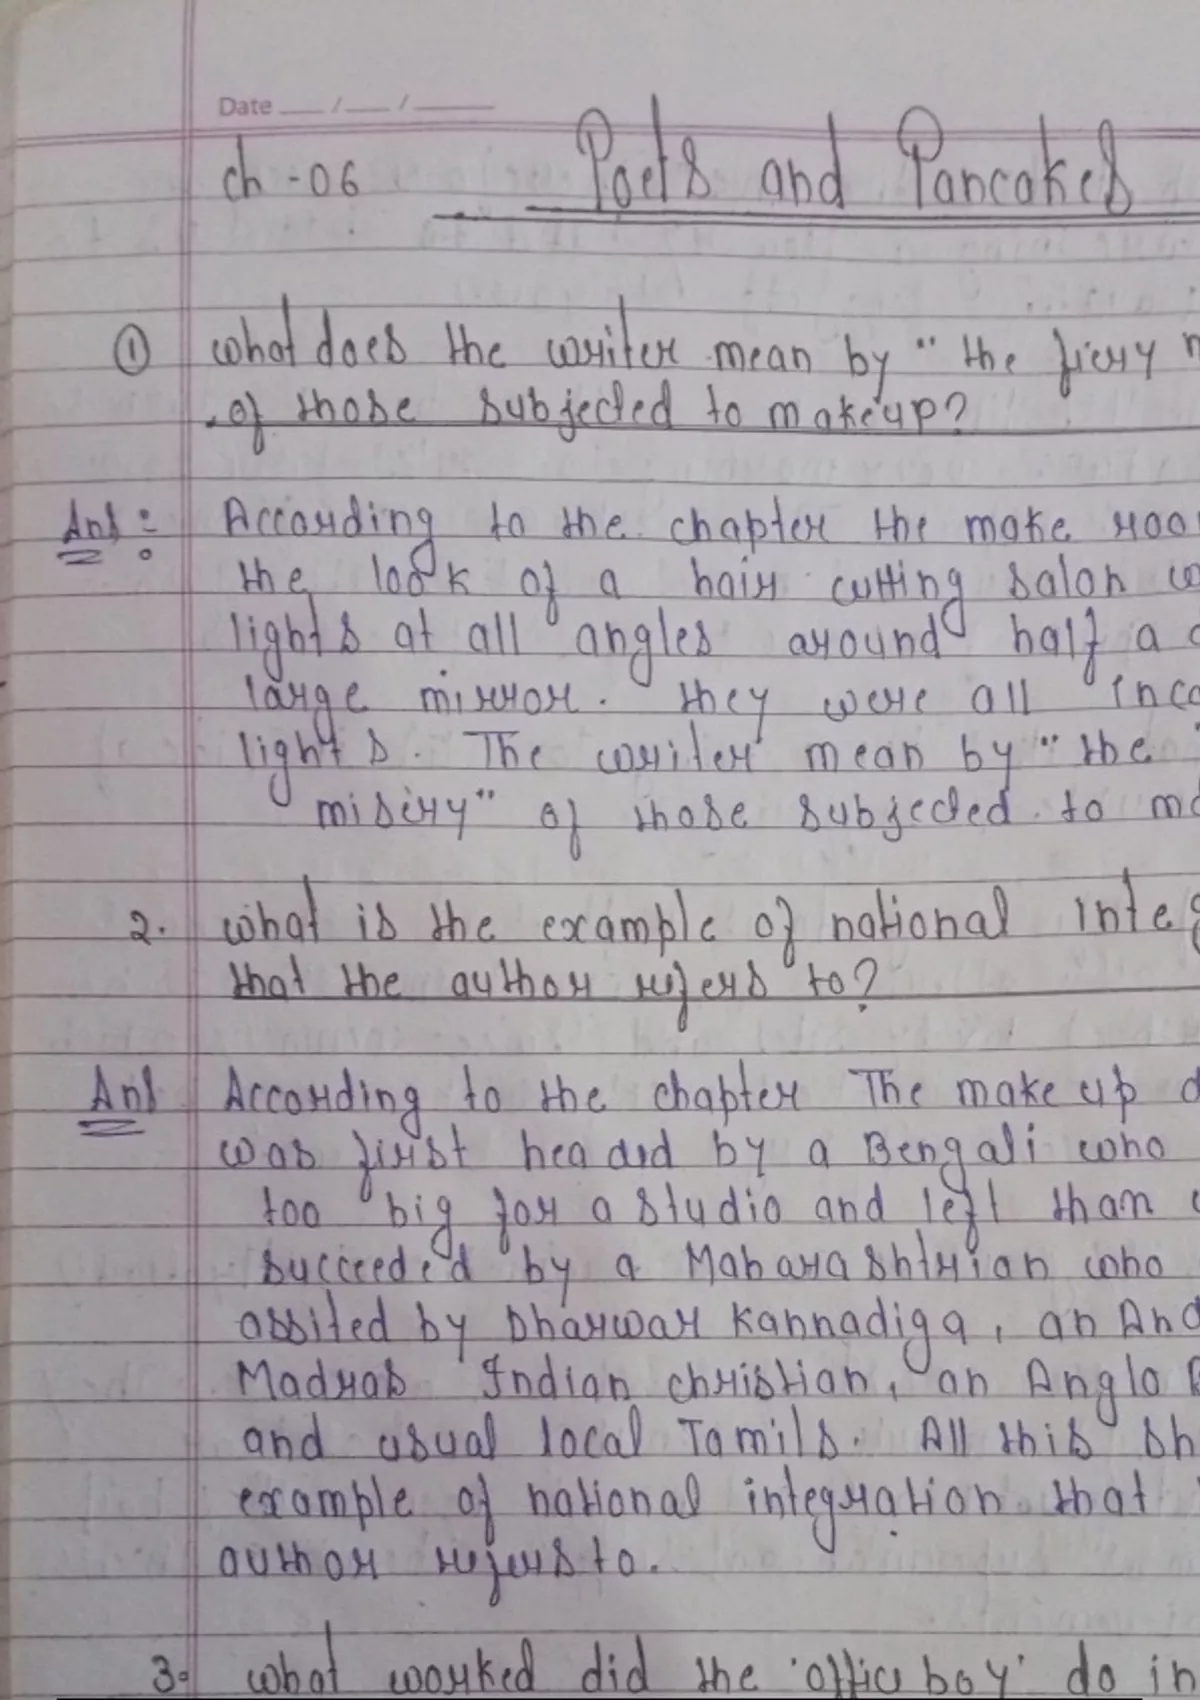 Date
ch - 06 Poets and Pancakes
① what does the writer mean by " the fiery
of those subjected to makeup?
Ans: According to the chapter the make
the look of a hair cutting salon
lights at all angles around half a
large mirror. they were all
lights. The writer mean by " the
misery" of those subjected to
2. what is the example of national
that the author refers to?
Ans According to the chapter The make up
was first headed by a Bengali who
too big for a studio and left than
succeeded by a Maharashtrian who
assited by Dharwar Kannadiga, an
Madras Indian christian, an Anglo
and usual local Tamils. All this
example of national integration that
author refers to.
3. what worked did the 'office boy' do in